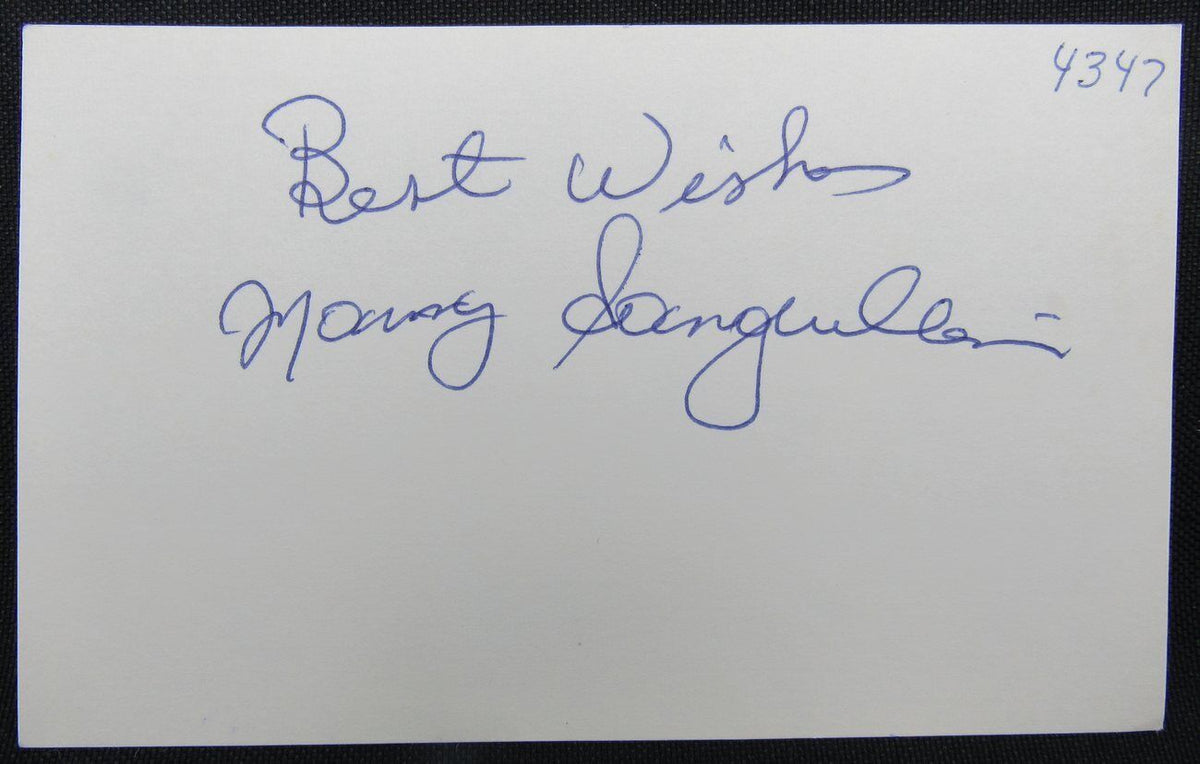 4347
Best Wishes
Manny Sanguillen